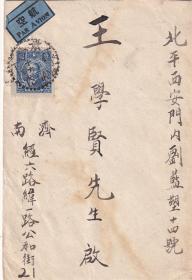 北平西安門內劉藍塑十四號
王學賢先生啟
濟南
經六路緯一路公和街21
航空
PAR AVION